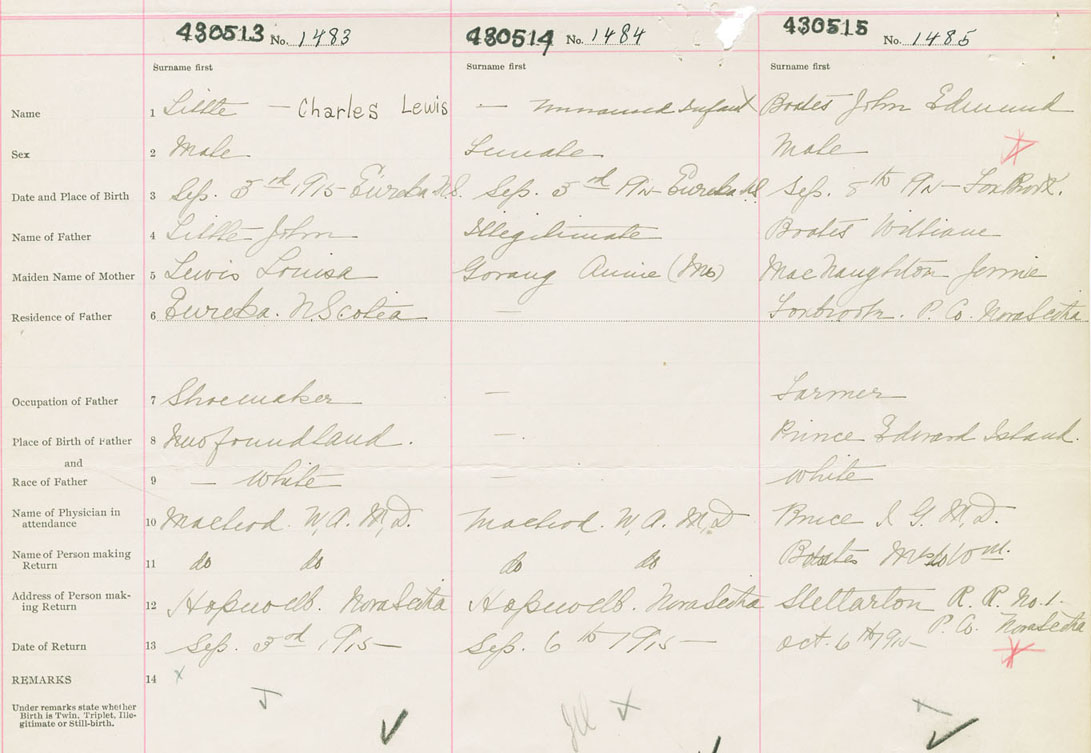 430513 No. 1483 430514 No. 1484 430515 No. 1485
Surname first Surname first Surname first
Name 1 Little — Charles Lewis — Unnamed Infant Boates John Edmund
Sex 2 Male Female Male
Date and Place of Birth 3 Sep. 3rd 1915 Eureka N.S. Sep. 3rd 1915 Eureka N.S. Sep. 8th 1915 — Foxbrook.
Name of Father 4 Little John Illegitimate Boates William
Maiden Name of Mother 5 Lewis Louisa Annie MacNaughton Jennie
Residence of Father 6 Eureka. N. Scotia — Foxbrook. P. Co. Nova Scotia
Occupation of Father 7 Shoemaker — Farmer
Place of Birth of Father 8 Newfoundland. — Prince Edward Island.
and
Race of Father 9 — White — White
Name of Physician in
attendance 10 Macleod. W. A. M. D. Macleod. W. A. M. D Bruce J. G. M. D.
Name of Person making
Return 11 do do do do Boates Wm.
Address of Person mak-
ing Return 12 Hopewell. Nova Scotia Hopewell. Nova Scotia Stellarton R. R. No. 1-
P. Co. Nova Scotia
Date of Return 13 Sep. 3rd 1915 — Sep. 6th 1915 — Oct. 6th 1915 —
REMARKS 14 x
Under remarks state whether
Birth is Twin, Triplet, Ille-
gitimate or Still-birth.